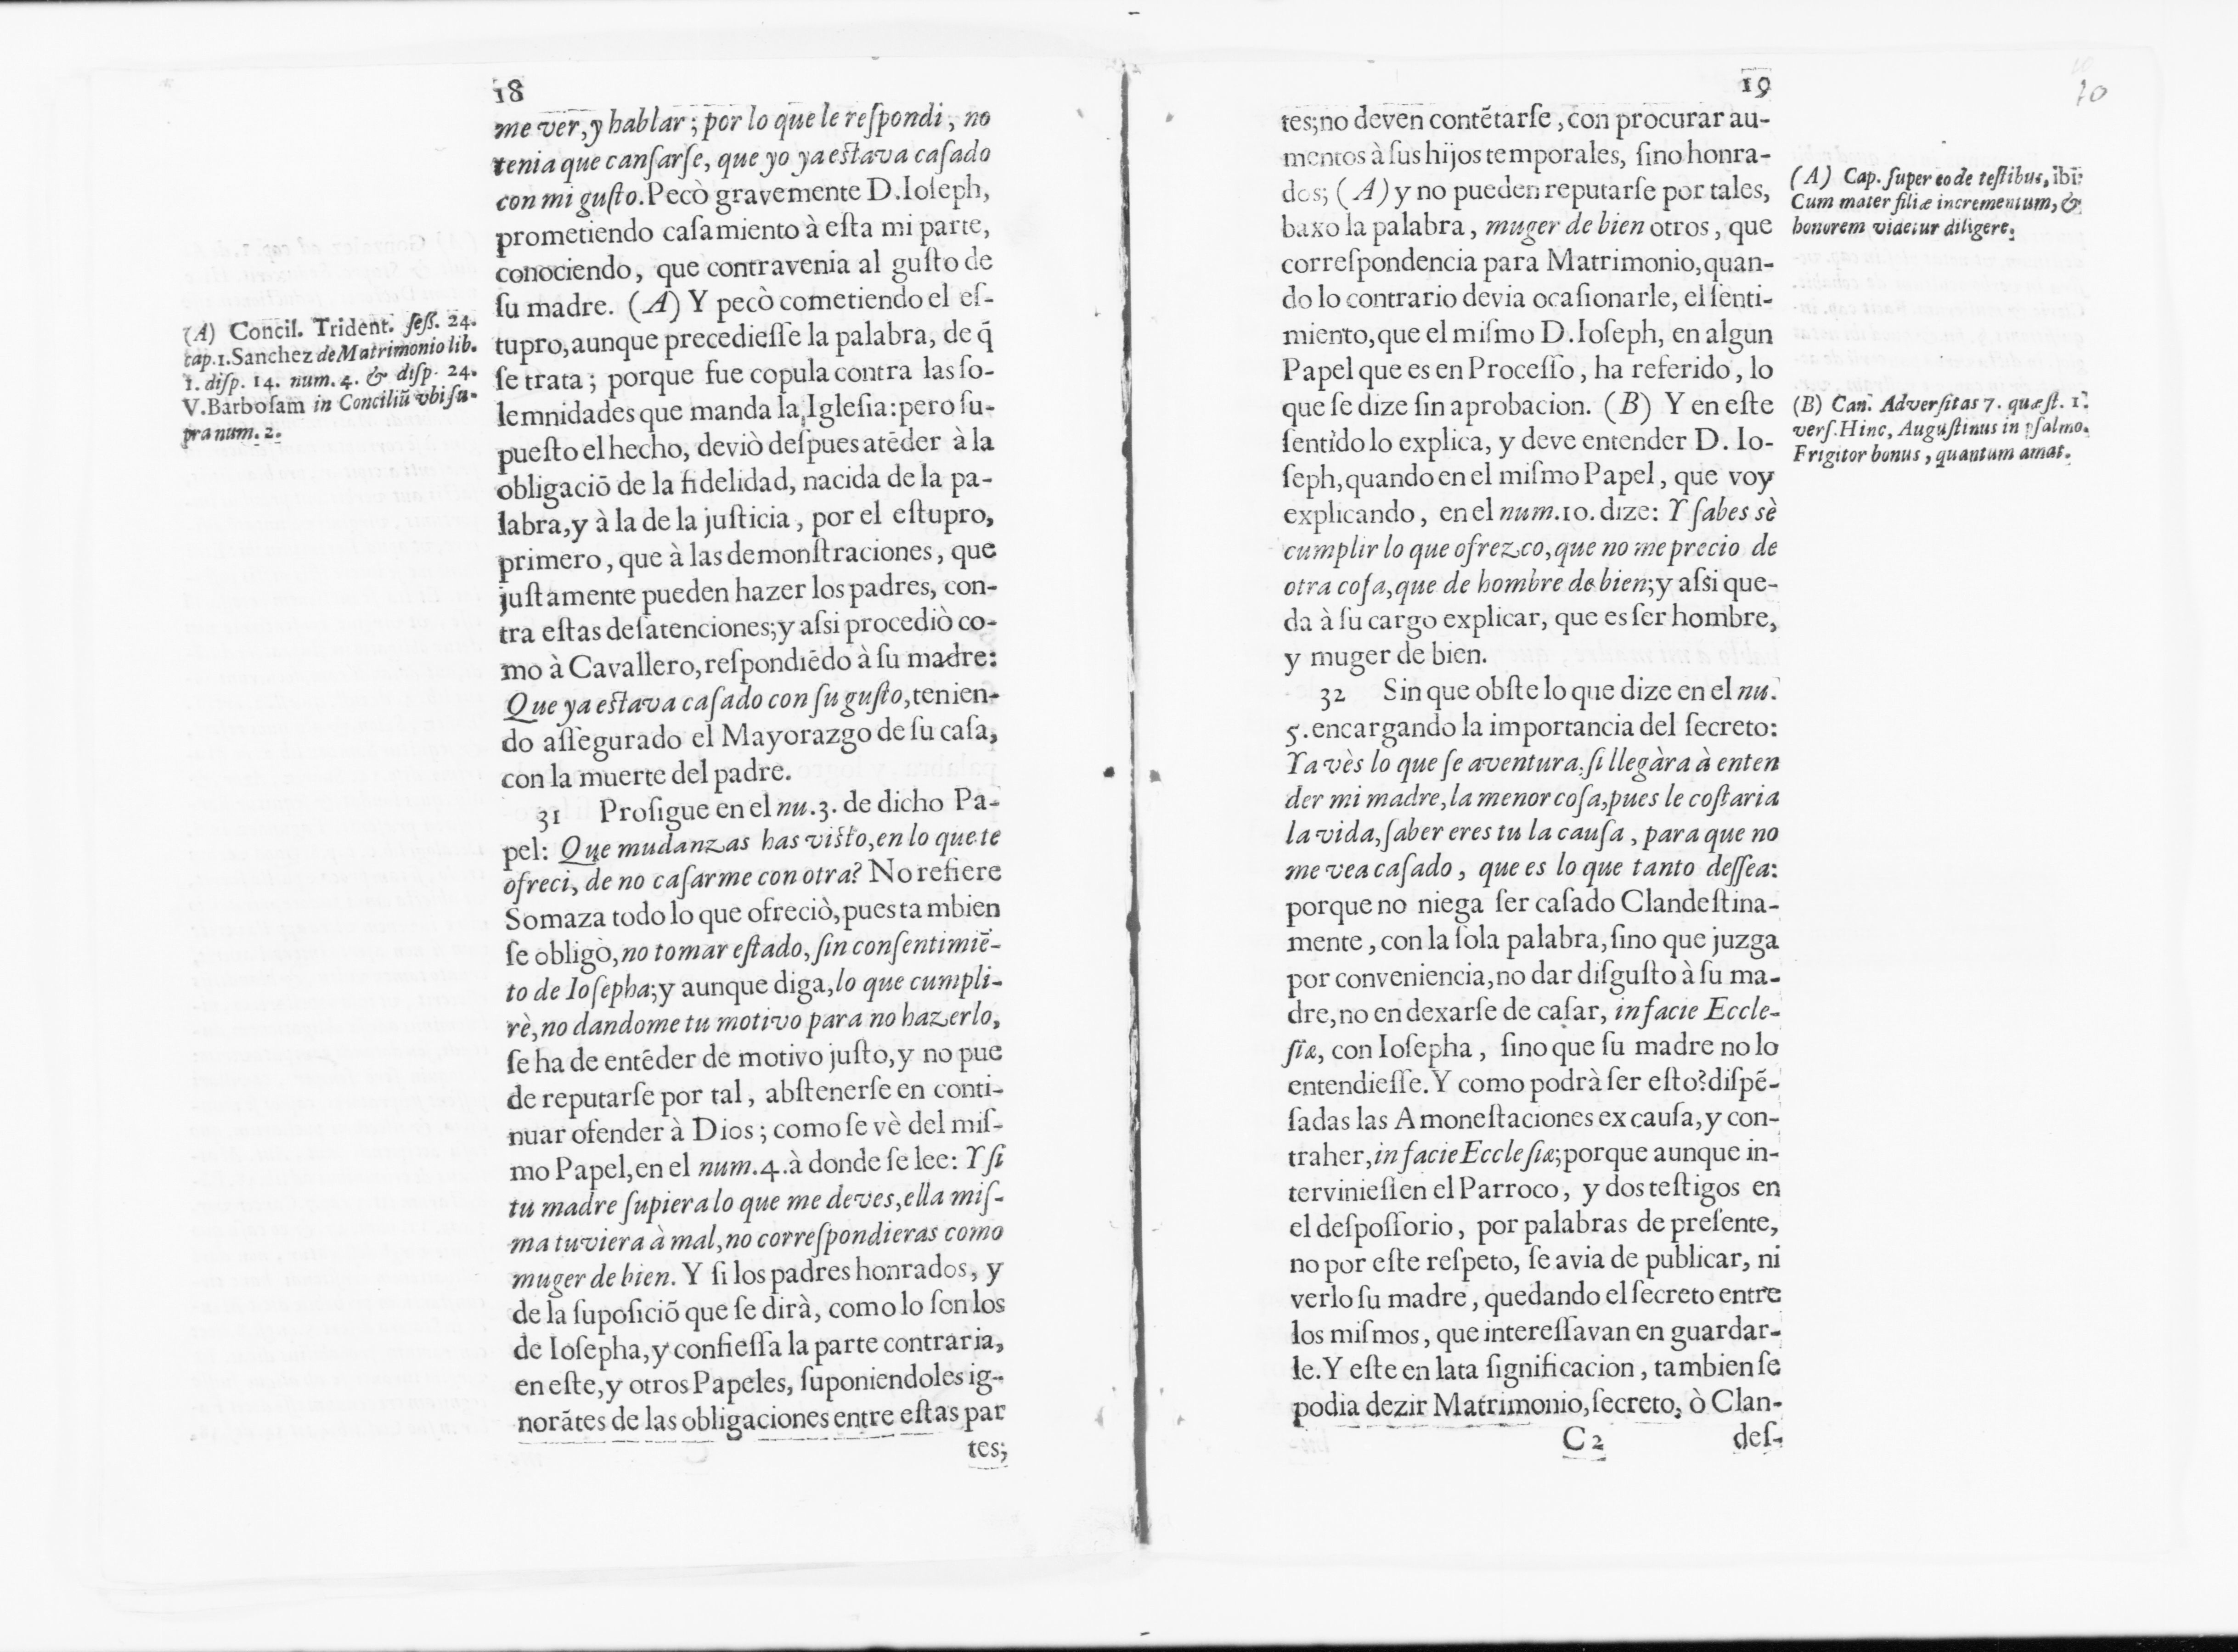 18
me ver, y hablar; por lo que le reſpondi, no
tenia que canſarſe, que yo ya eſtava caſado
con mi guſto. Pecò gravemente D. Ioſeph,
prometiendo caſamiento à eſta mi parte,
conociendo, que contravenia al guſto de
ſu madre. (A) Y pecò cometiendo el eſ-
tupro, aunque precedieſſe la palabra, de q̃
ſe trata; porque fue copula contra las ſo-
lemnidades que manda la Igleſia: pero ſu-
pueſto el hecho, deviò deſpues atẽder à la
obligaciõ de la fidelidad, nacida de la pa-
labra, y à la de la juſticia, por el eſtupro,
primero, que à las demonſtraciones, que
juſtamente pueden hazer los padres, con-
tra eſtas deſatenciones; y aſsi procediò co-
mo à Cavallero, reſpondiẽdo à ſu madre:
Que ya eſtava caſado con ſu guſto, tenien-
do aſſegurado el Mayorazgo de ſu caſa,
con la muerte del padre.
31 Proſigue en el nu. 3. de dicho Pa-
pel: Que mudanzas has viſto, en lo que te
ofreci, de no caſarme con otra? No refiere
Somaza todo lo que ofreciò, pues tambien
ſe obligò, no tomar eſtado, ſin conſentimiẽ-
to de Ioſepha; y aunque diga, lo que cumpli-
rè, no dandome tu motivo para no hazerlo,
ſe ha de entẽder de motivo juſto, y no pue
de reputarſe por tal, abſtenerſe en conti-
nuar ofender à Dios; como ſe vè del miſ-
mo Papel, en el num. 4. à donde ſe lee: Y ſi
tu madre ſupiera lo que me deves, ella miſ-
ma tuviera à mal, no correſpondieras como
muger de bien. Y ſi los padres honrados, y
de la ſupoſiciõ que ſe dirà, como lo ſon los
de Ioſepha, y confieſſa la parte contraria,
en eſte, y otros Papeles, ſuponiendoles ig-
norãtes de las obligaciones entre eſtas par
tes;
(A) Concil. Trident. ſeſſ. 24.
cap. 1. Sanchez de Matrimonio lib.
1. diſp. 14. num. 4. & diſp. 24.
V. Barboſam in Conciliũ vbi ſu-
pra num. 2.
19
10
tes; no deven contẽtarſe, con procurar au-
mentos à ſus hijos temporales, ſino honra-
dos; (A) y no pueden reputarſe por tales,
baxo la palabra, muger de bien otros, que
correſpondencia para Matrimonio, quan-
do lo contrario devia ocaſionarle, el ſenti-
miento, que el miſmo D. Ioſeph, en algun
Papel que es en Proceſſo, ha referido, lo
que ſe dize ſin aprobacion. (B) Y en eſte
ſentido lo explica, y deve entender D. Io-
ſeph, quando en el miſmo Papel, que voy
explicando, en el num. 10. dize: Y ſabes sè
cumplir lo que ofrezco, que no me precio de
otra coſa, que de hombre de bien; y aſsi que-
da à ſu cargo explicar, que es ſer hombre,
y muger de bien.
32 Sin que obſte lo que dize en el nu.
5. encargando la importancia del ſecreto:
Ya vès lo que ſe aventura, ſi llegàra à enten
der mi madre, la menor coſa, pues le coſtaria
la vida, ſaber eres tu la cauſa, para que no
me vea caſado, que es lo que tanto deſſea:
porque no niega ſer caſado Clandeſtina-
mente, con la ſola palabra, ſino que juzga
por conveniencia, no dar diſguſto à ſu ma-
dre, no en dexarſe de caſar, in facie Eccle-
ſiæ, con Ioſepha, ſino que ſu madre no lo
entendieſſe. Y como podrà ſer eſto? diſpẽ-
ſadas las Amoneſtaciones ex cauſa, y con-
traher, in facie Eccleſiæ; porque aunque in-
tervinieſſen el Parroco, y dos teſtigos en
el deſpoſſorio, por palabras de preſente,
no por eſte reſpeto, ſe avia de publicar, ni
verlo ſu madre, quedando el ſecreto entre
los miſmos, que intereſſavan en guardar-
le. Y eſte en lata ſignificacion, tambien ſe
podia dezir Matrimonio, ſecreto, ò Clan-
C 2 deſ-
(A) Cap. ſuper eo de teſtibus, ibi:
Cum mater filiæ incrementum, &
honorem videtur diligere.
(B) Can. Adverſitas 7. quæſt. 1.
verſ. Hinc, Auguſtinus in pſalmo.
Frigitor bonus, quantum amat.